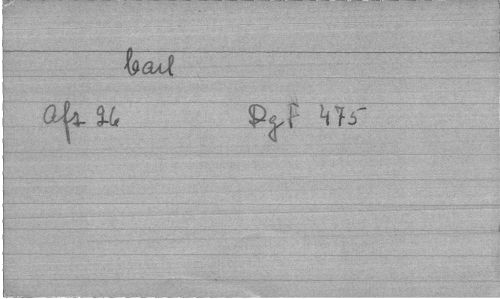 Carl
Afs 26 DgF 475